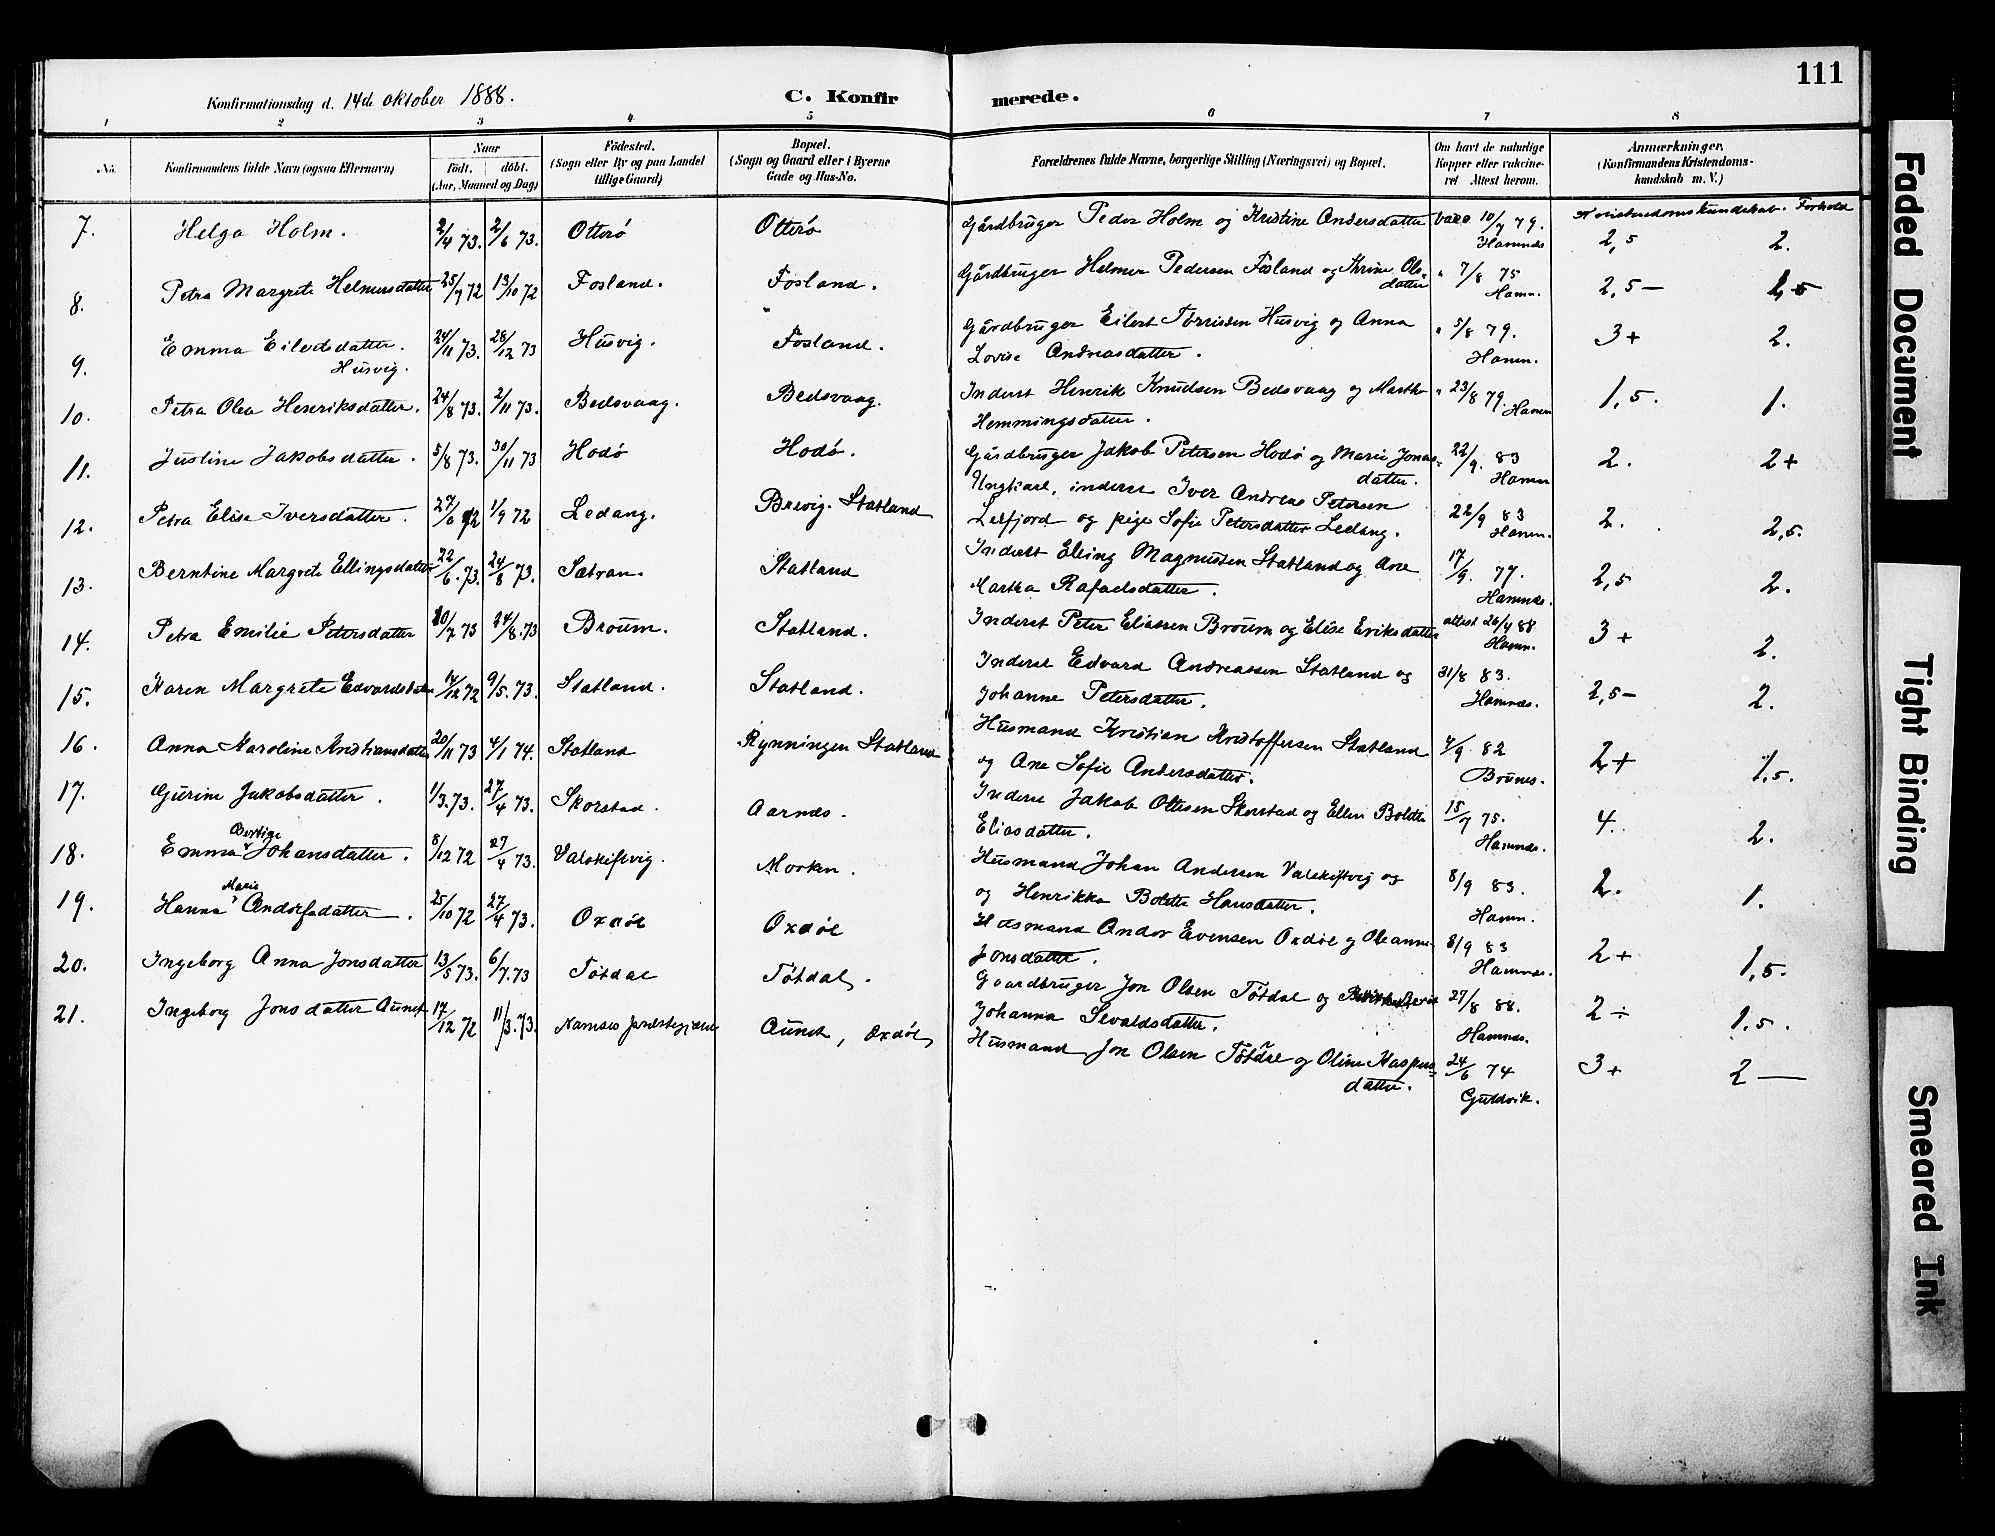 111
Konfirmationsdag d. 14de oktober 1888.
C. Konfirmerede.
1 2 3 4 5 6 7 8
No. Konfirmandens fulde Navn (ogsaa Efternavn) Naar født. døbt. (Aar, Maaned og Dag) Fødested. (Sogn eller By og paa Landet tillige Gaard) Bopæl. (Sogn og Gaard eller i Byerne Gade og Hus-No. Forældrenes fulde Navne, borgerlige Stilling (Næringsvei) og Bopæl. Om havt de naturlige Kopper eller vakcineret Attest herom. Anmærkninger, (Konfirmandens Kristendomskundskab m. V.)
Kristendomskundskab. Forhold
7. Helga Holm. 2/4 73. 2/6 73. Otterø Otterø Gårdbruger Peder Holm og Kristine Andersdatter vacc 10/7 79. Hamnes 2,5 2.
8. Petra Margrete Helmersdatter 25/7 72 13/10 72 Fosland. Fosland. Gårdbruger Helmer Pedersen Fosland og Trine Olsdatter " 7/8 75 Hamn. 2,5— 1,5
9. Emma Eilertsdatter Husvig. 24/11 73. 28/12 73 Husvig. Fosland. Gårdbruger Eilert Torrissen Husvig og Anna Lovise Andreasdatter. " 5/8 79. Hamn. 3+ 2.
10. Petra Olea Henriksdatter. 24/8 73. 2/11 73. Bedsvaag. Bedsvaag. Inderst Henrik Knudsen Bedsvaag og Martha Hemmingsdatter. " 23/8 79. Hamn 1,5. 1.
11. Justine Jakobsdatter. 5/8 73. 30/11 73 Hodø Hodø. Gårdbruger Jakob Petersen Hodø og Marie Jonasdatter. 22/9. 83 Hamn 2. 2+
12. Petra Elise Iversdatter. 27/6 72 1/9 72 Ledang. Brevig. Statland Ungkarl, inderst Iver Andreas Petersen Lesfjord og pige Sofie Petersdatter Ledang. 22/9 83 Hamn. 2. 2,5.
13. Berntine Margrete Ellingsdatter 22/6. 73. 24/8 73. Sætran. Statland Inderst Elling Magnussen Statland og Ane Martha Rafaelsdatter. 17/9. 77. Hamnes. 2,5 2.
14. Petra Emilie Petersdatter 20/7 73 24/8. 73 Brøum. Statland. Inderst Peter Eliassen Brøum og Elise Eriksdatter attest 26/4 88 Hamn. 3+ 2.
15. Karen Margrete Edvardsdatter 14/12 72 9/5. 73. Statland. Statland. Inderst Edvard Andreassen Statland og Johanne Petersdatter. 31/8 83. Hamnes. 2,5— 2.
16. Anna Karoline Kristiansdatter 20/11 73 4/1 74. Statland Rynningen Statland Husmand Kristian Kristoffersen Statland og Ane Sofie Andersdatter. 4/9. 82 Brunes. 2+ 1,5.
17. Gurine Jakobsdatter. 1/3. 73. 27/4 73. Skorstad. Aarnes. Inderst Jakob Ottesen Skorstad og Ellen Bolette Eliasdatter. 15/7 75. Hamnes. 4. 2.
18. Emma Bertine Johansdatter. 8/12 72 27/4 73. Valskiftvig. Morken. Husmand Johan Andersen Valskiftvig og og Henrikke Bolette Hansdatter. 8/9 83. Hamn. 2. 1.
19. Hanna Marie Andorsdatter. 25/10 72 27/4 73. Oxdøl Oxdøl Husmand Andor Evensen Oxdøl og Oleanna Jonsdatter. 8/9 83 Hamnes. 2+ 1,5.
20. Ingeborg Anna Jonsdatter 13/5 73. 6/7. 73 Tøtdal Tøtdal. Gaardbruger Jon Olsen Tøtdal og Johanna Sivaldsdatter. 27/8 88. Hamnes. 2÷ 1,5.
21. Ingeborg Jonsdatter Aunet 17/12 72 11/3. 73. Namsos Aunet, Oxdøl Husmand Jon Olsen Tøtdal og Oline Kaspersdatter. 24/6 74 Gutvik. 3+ 2—
Faded Document
Tight Binding
Smeared Ink